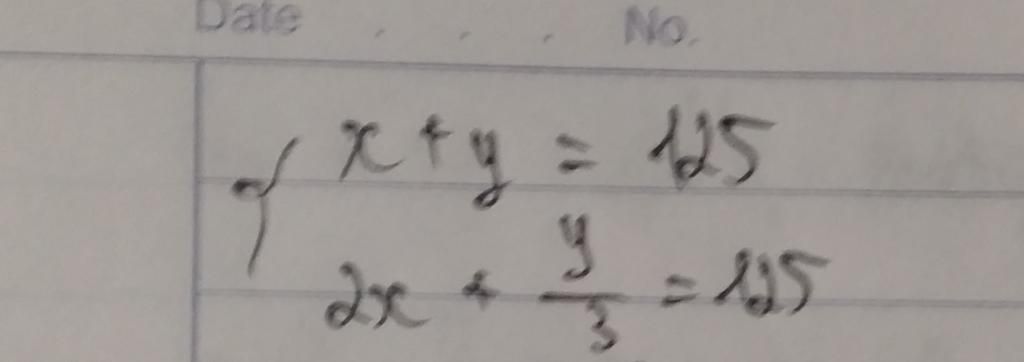 Date . . . No.
x + y = 125
2x + y/3 = 125